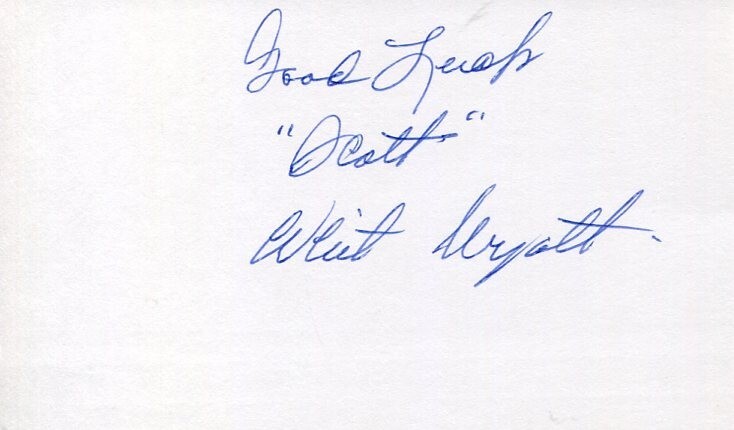 Good Luck
"Scott"
Whit Wyatt